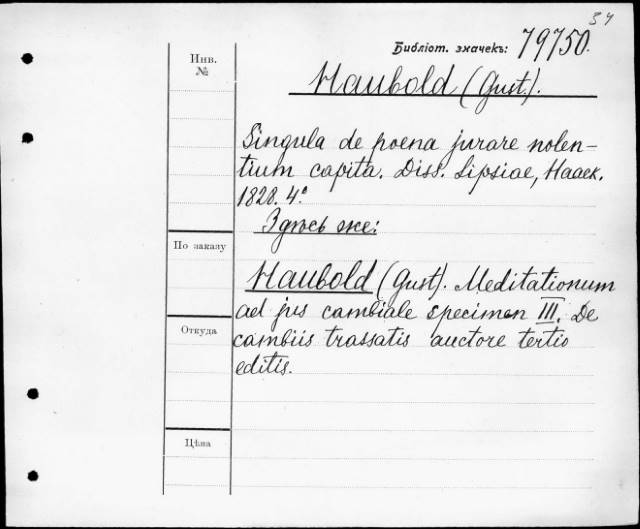 34
Библіот. значекъ: 79750.
Инв.
№
Haubold (Gust.).
Singula de poena jurare nolen-
tium capita. Diss. Lipsiae, Haack.
1828. 4°.
Здѣсь же:
По заказу
Haubold (Gust). Meditationum
ad jus cambiale specimen III. De
Откуда
cambiis trassatis auctore tertio
editis.
Цѣна